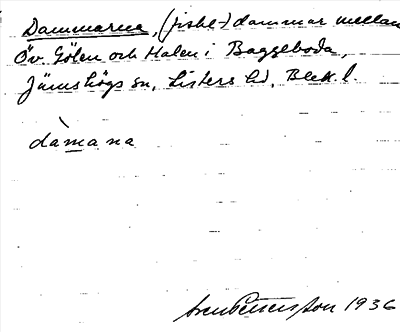 Dammarna, (fiske-) dammar mellan
Öv. Gölen och Halen i Baggeboda,
Jämshögs sn, Listers hd, Blek l.
dàmana
Sven Pettersson 1936